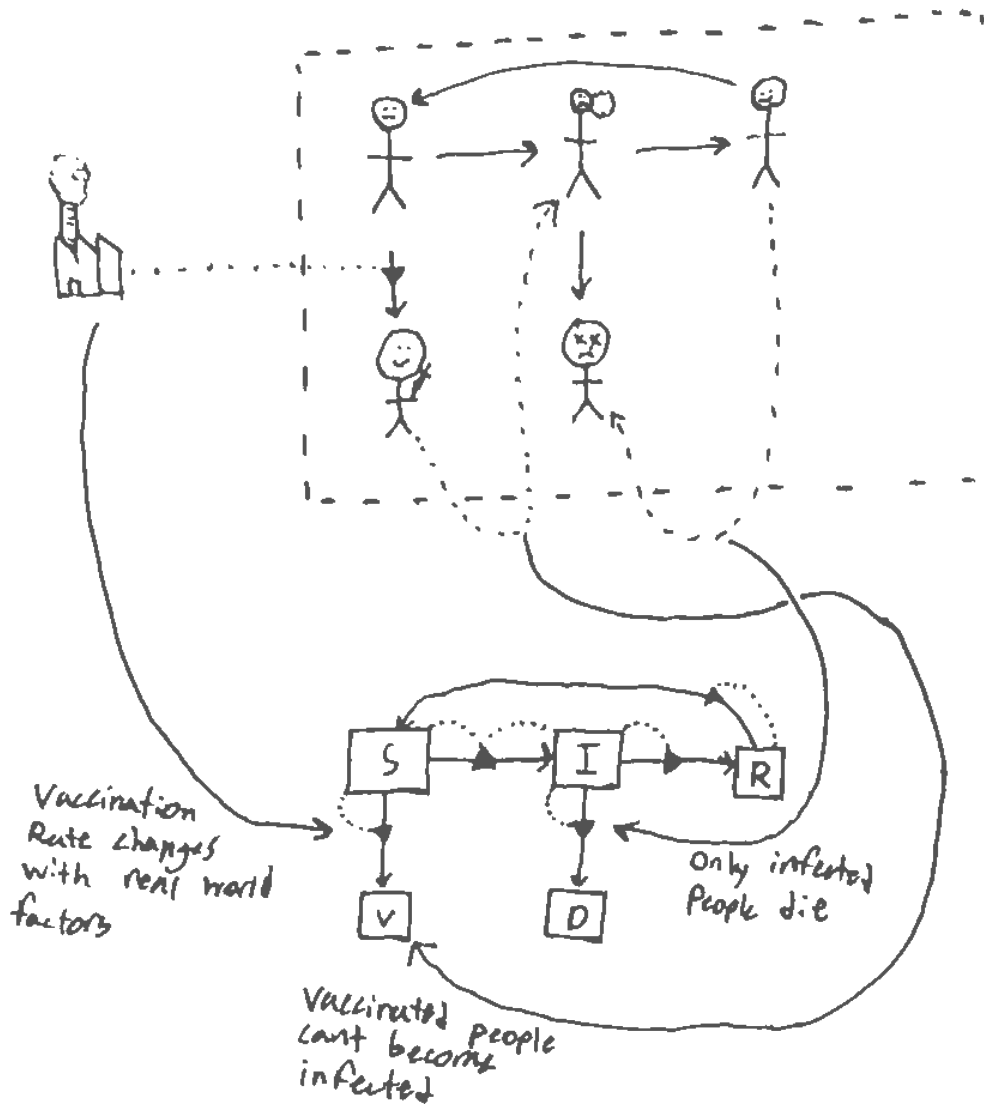 S
I
R
V
D
Vaccination
Rate changes
with real world
factors
Only infected
People die
Vaccinated people
cant become
infected